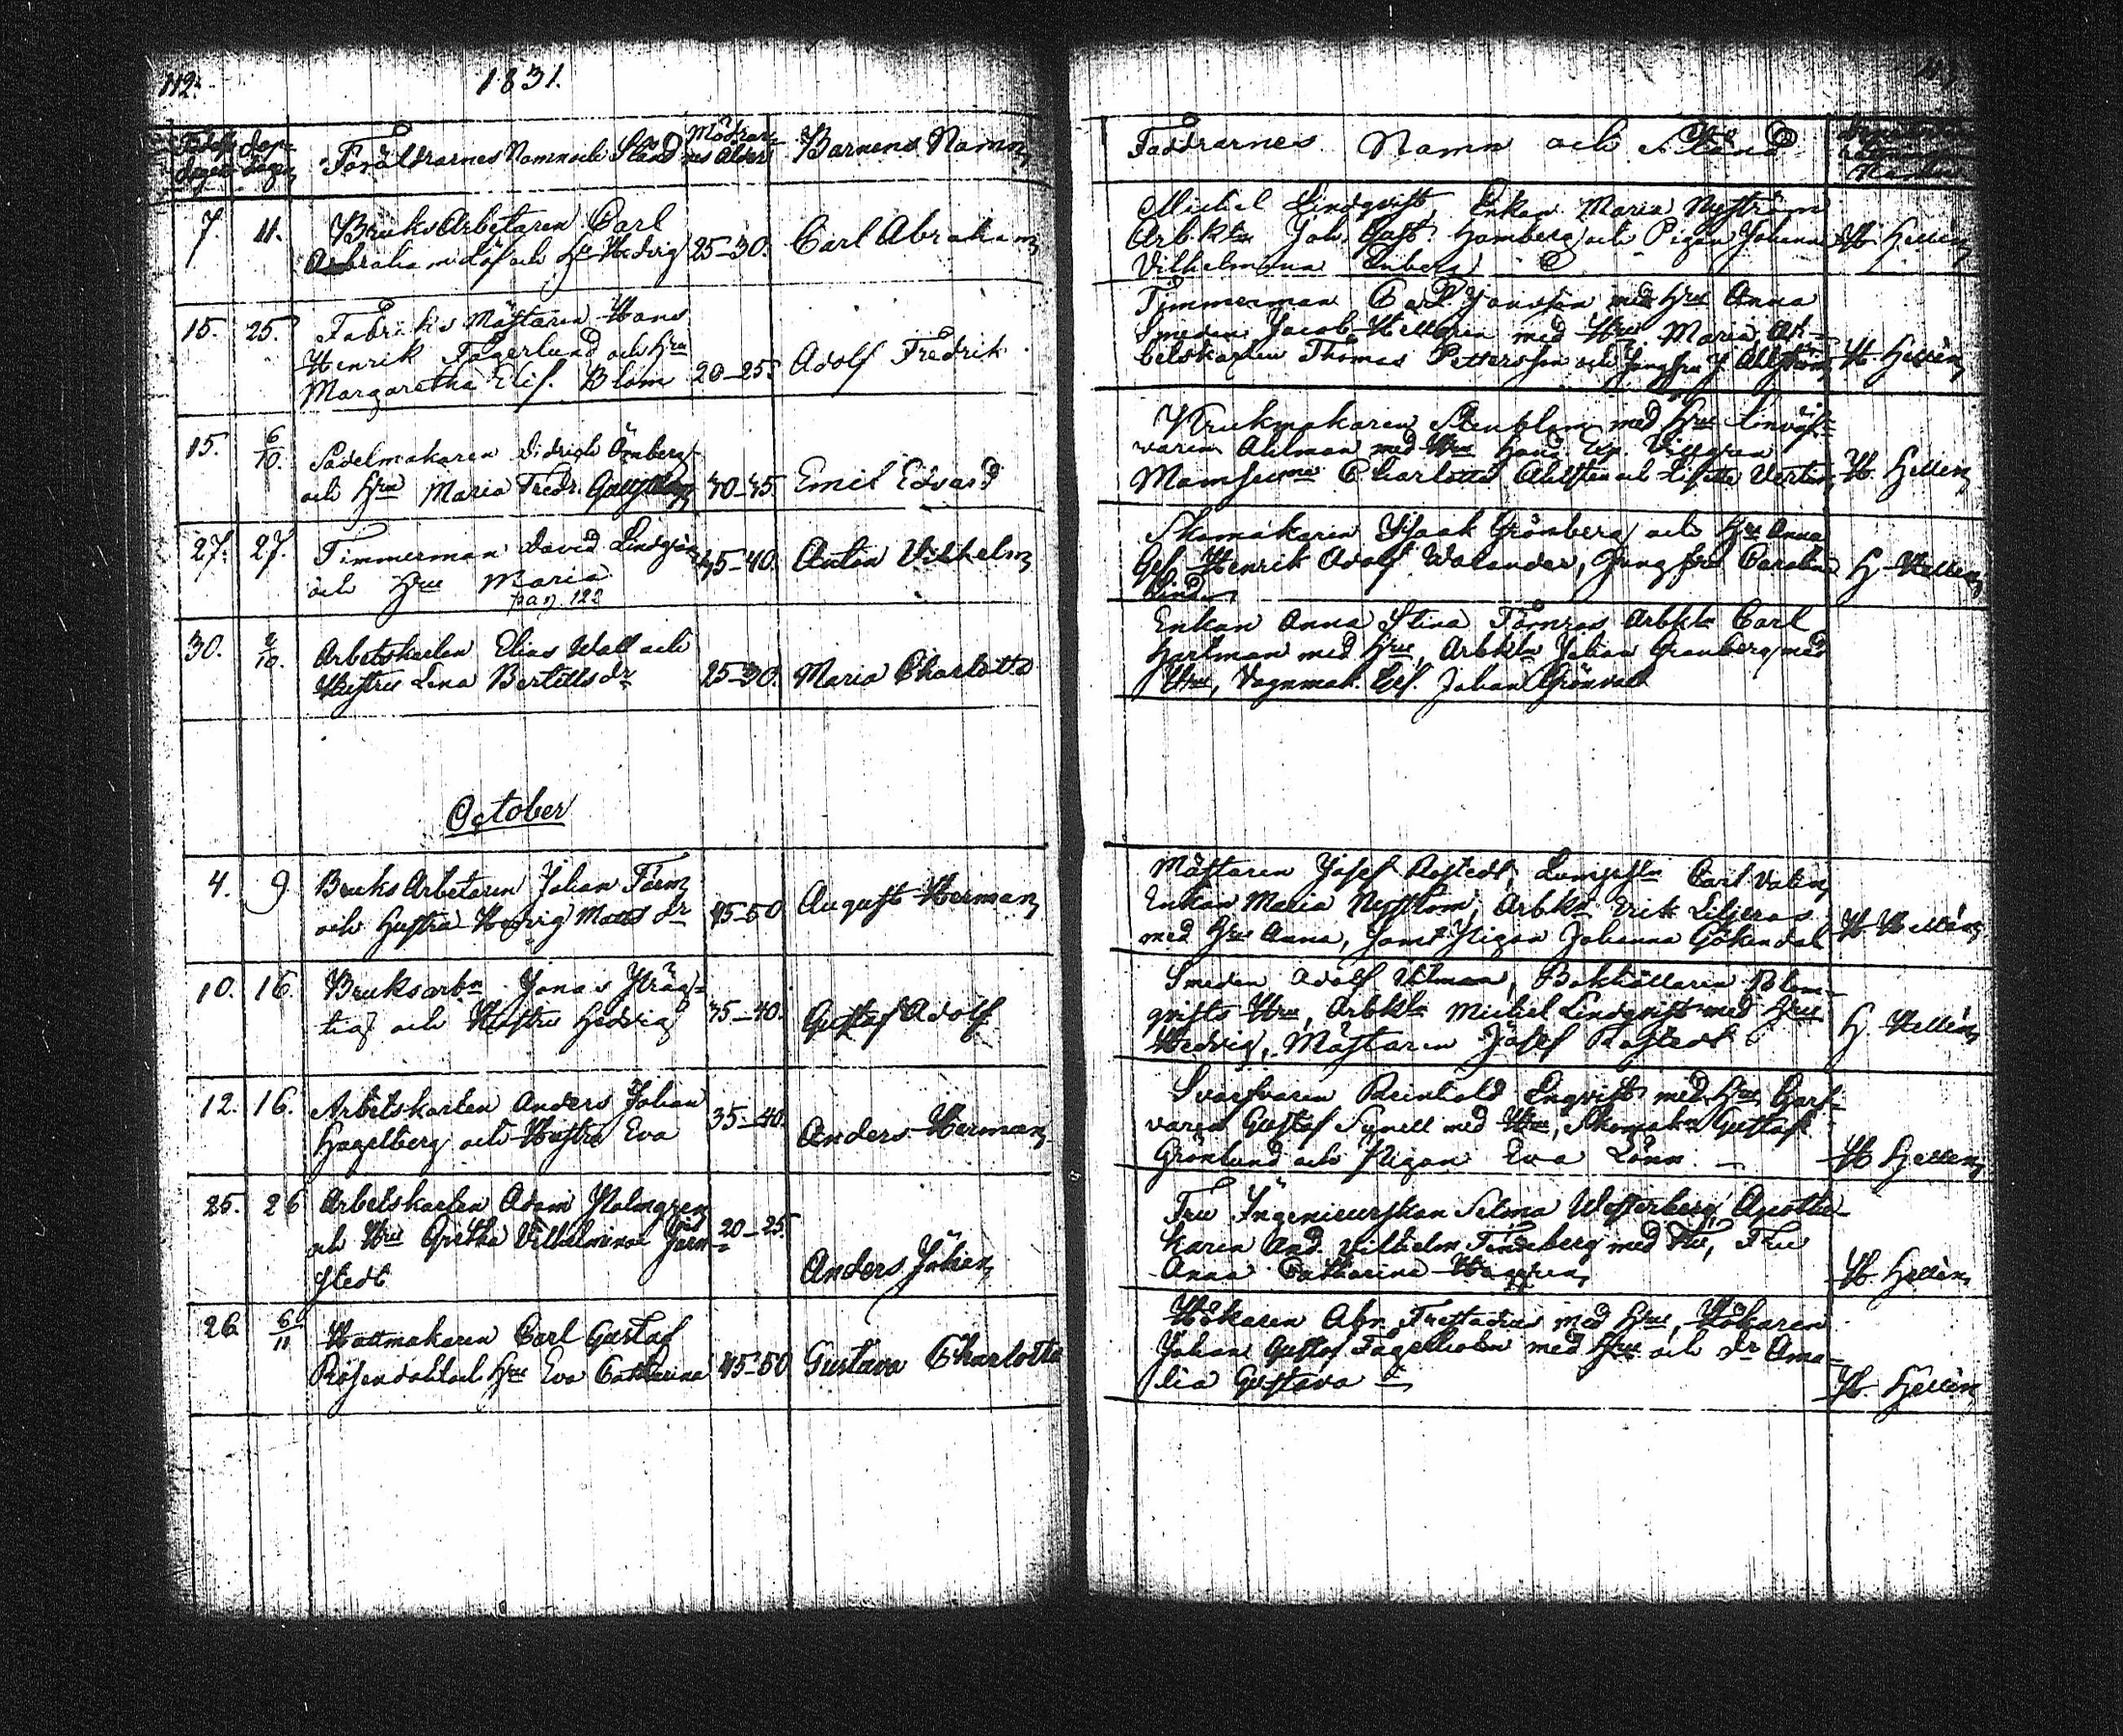 112.
1831.
Födelse dagen
Döp- dagen
Föräldrarnes Namn och Stånd
Mödrarnes Ålder
Barnens Namn
7. 11. Bruks Arbetaren Carl
Abraham Löf och Hu Hedvig 25-30. Carl Abraham
15. 25. Fabriks Mästaren Hans
Henrik Fagerlund och Hru
Margaretha Elis. Blom 20-25. Adolf Fredrik
15. 6/10. Sadelmakaren Didrich Önberg
och Hru Maria Fredr. 40-45. Emil Edvard
27. 27. Timmerman David
och Hru Maria 35-40. Anton Vilhelm
pag 122
30. 2/10. Arbetskarlen Elias Wall och
Hustru Lena Bertillsdr 25-30. Maria Charlotta
October
4. 9 Bruks Arbetaren Johan Törn
och Hustru Hedvig Matts dr 45-50 August Herman
10. 16. Bruksarbn Jonas Sträg-
och Hustru Hedvig 35-40. Gustaf Adolf
12. 16. Arbetskarlen Anders Johan
Hagelberg och Hustru Eva 35-40. Anders Herman
25. 26 Arbetskarlen Adam Malmgren
och Hru Gretha Vilhelmina Jern- 20-25.
stedt Anders Johan
26 6/11 Hattmakaren Carl Gustaf
Rosendahl och Hru Eva Catharina 45-50 Gustava Charlotta
Faddrarnes Namn och Stånd
Michel Lindqvist, Enkan Maria Nyström
Arb.kln Joh. Gust. Hamberg och Pigan Johanna H. Hellén
Vilhelmina Enberg
Timmerman Carl Jansson med Hru Anna
Smeden Jacob Hellgren med Hru Maria, Ar-
betskarlen Thomas Pettersson och Jungfru J. Ahlström H. Hellén
Krukmakaren Stenblom med Hru
varen Ahlman med Hru Hand. Exp. Villgren
Mamsellerne Charlotta Ahlsten och Lisette H. Hellén
Skomakaren Isaak Grönberg och Hru Anna
Ges. Henrik Adolf Walander, Jungfru Carolina H. Hellén
Lind
Enkan Anna Stina Törnros Arbkln Carl
Hartman med Hru, Arbkln Johan Granberg med
Hru, Vagnmak. Ges. Johan Grönvall
Mästaren Josef Rostedt, Carl
Enkan Maria Nyström, Arbkn Erik Liljeros
med Hru Anna, samt Pigan Johanna Gökendal H. Hellén
Smeden Adolf Ulman, Bokhållaren Blom-
qvists Hru, Arbkln Michel Lindqvist med Hru
Hedvig, Mästaren Josef Rostedt H. Hellén
Svarfvaren Reinhold Engvist med Hru Garf-
varen Gustaf Synell med Hru, Skomakn Gustaf
Grönlund och Pigan Eva Lönn H. Hellén
Fru Ingenieurskan Selma Westerberg, Apothe-
karen And. Vilhelm med Fru, Fru
Anna Catharina H. Hellén
Hökaren Abr. med Hru, Hökaren
Johan Gustaf Fagerholm med Hru och dr Ama-
lia Gustava H. Hellén